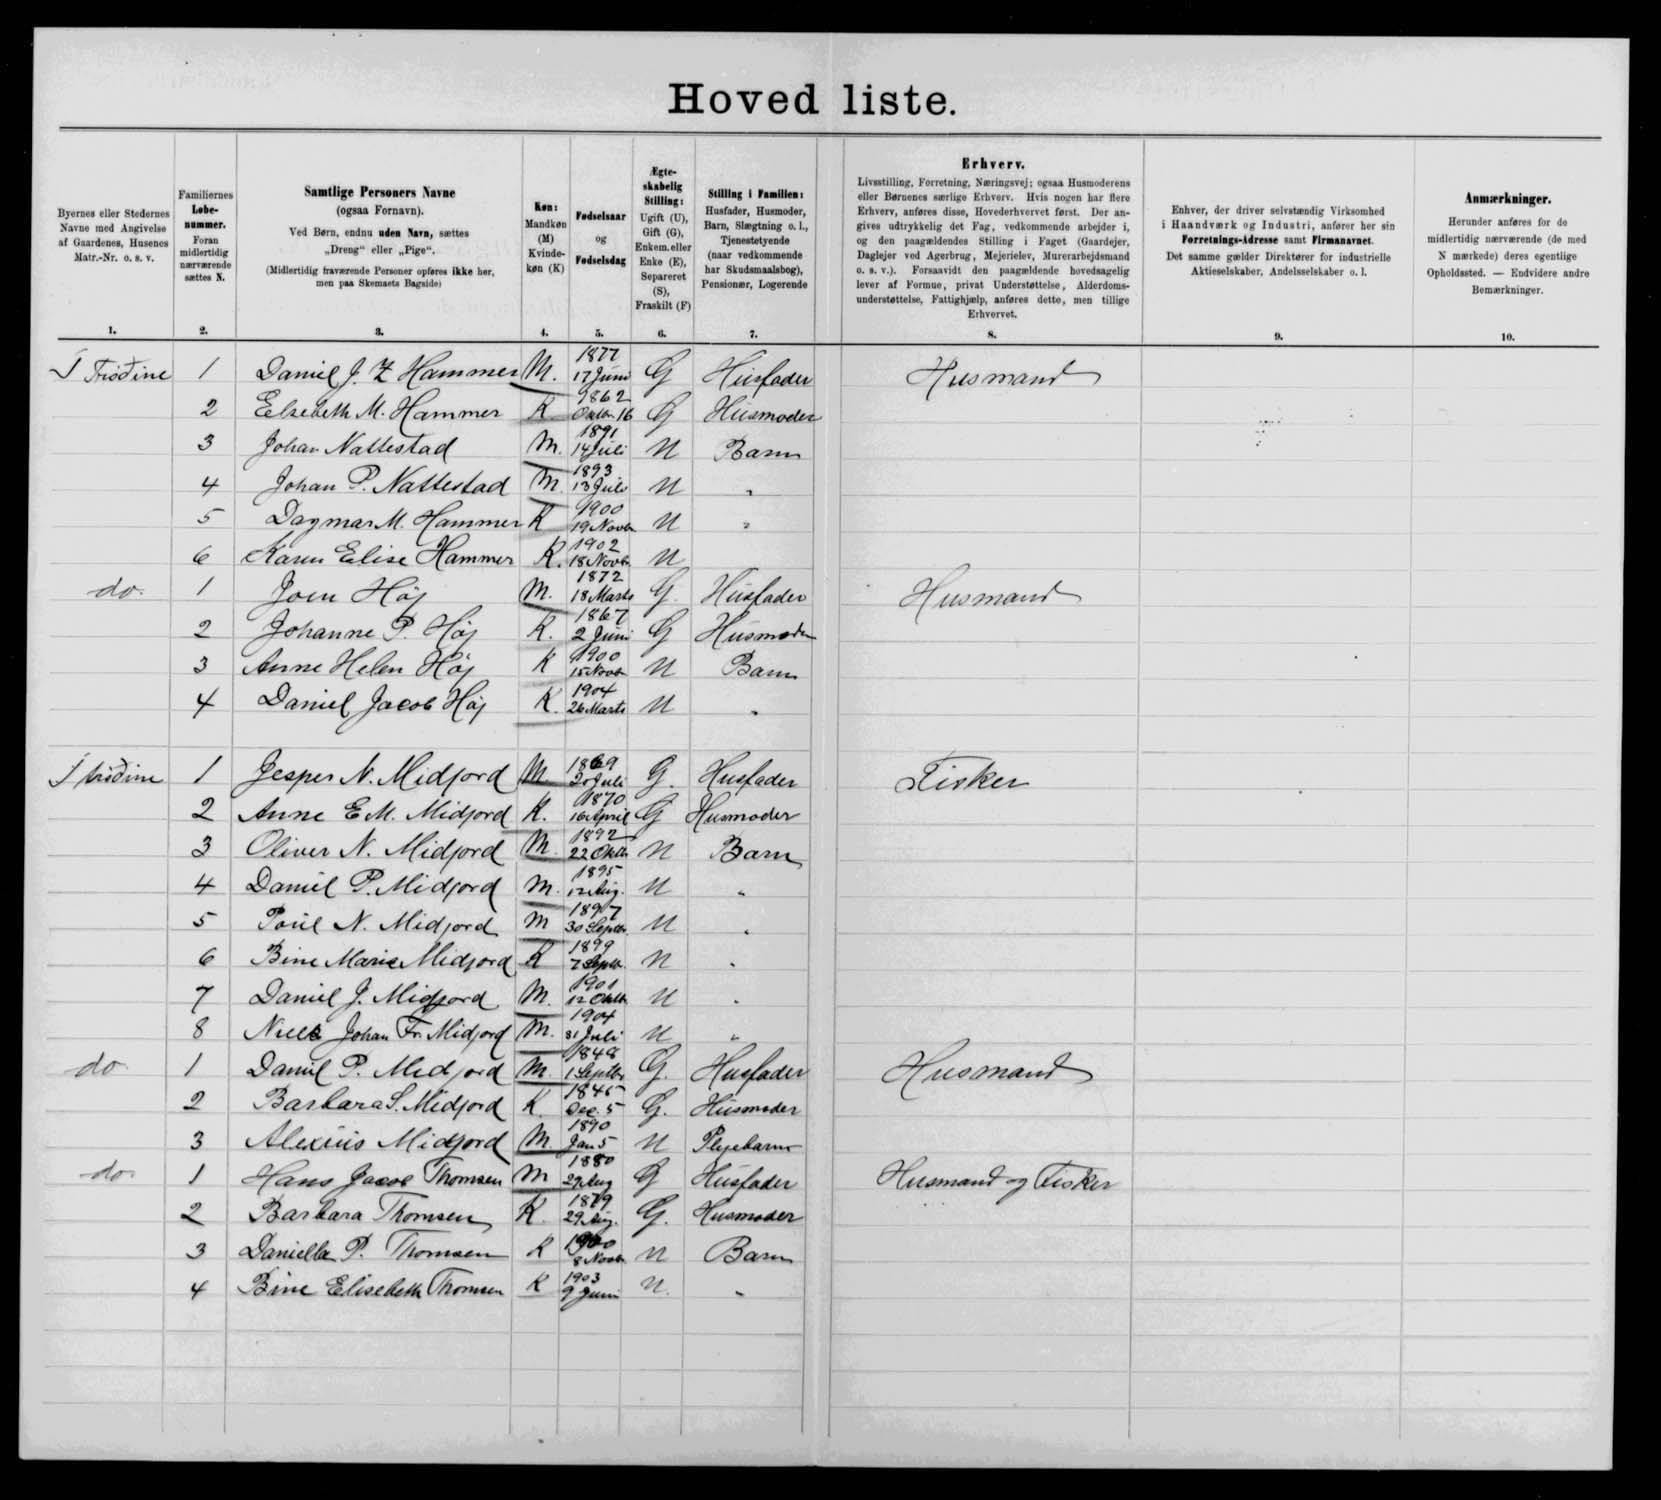 Hoved liste.
Byernes eller Stedernes
Navne med Angivelse
af Gaardenes, Husenes
Matr.-Nr. o. s. v.
1.
Familiernes
Løbe-
nummer.
Foran
midlertidig
nærværende
sættes N.
2.
Samtlige Personers Navne
(ogsaa Fornavn).
Ved Børn, endnu uden Navn, sættes
„Dreng“ eller „Pige“.
(Midlertidig fraværende Personer opføres ikke her,
men paa Skemaets Bagside)
3.
Køn:
Mandkøn
(M)
Kvinde-
køn (K)
4.
Fødselsaar
og
Fødselsdag
5.
Ægte-
skabelig
Stilling:
Ugift (U),
Gift (G),
Enkem. eller
Enke (E),
Separeret
(S),
Fraskilt (F)
6.
Stilling i Familien:
Husfader, Husmoder,
Barn, Slægtning o. l.,
Tjenestetyende
(naar vedkommende
har Skudsmaalsbog),
Pensionær, Logerende
7.
Erhverv.
Livsstilling, Forretning, Næringsvej; ogsaa Husmoderens
eller Børnenes særlige Erhverv. Hvis nogen har flere
Erhverv, anføres disse, Hovederhvervet først. Der an-
gives udtrykkelig det Fag, vedkommende arbejder i,
og den paagældendes Stilling i Faget (Gaardejer,
Daglejer ved Agerbrug, Mejerielev, Murerarbejdsmand
o. s. v.). Forsaavidt den paagældende hovedsagelig
lever af Formue, privat Understøttelse, Alderdoms-
understøttelse, Fattighjælp, anføres dette, men tillige
Erhvervet.
8.
Enhver, der driver selvstændig Virksomhed
i Haandværk og Industri, anfører her sin
Forretnings-Adresse samt Firmanavnet.
Det samme gælder Direktører for industrielle
Aktieselskaber, Andelsselskaber o. l.
9.
Anmærkninger.
Herunder anføres for de
midlertidig nærværende (de med
N mærkede) deres egentlige
Opholdssted. — Endvidere andre
Bemærkninger.
10.
Í Trøðine 1 Daniel J. Z Hammer M. 1877 17 Juni G Husfader Husmand
2 Elsebeth M. Hammer K 1862 Oktbr 16 G Husmoder
3 Johan Nattestad M. 1891 14 Juli U Barn
4 Johan P. Nattestad M. 1893 13 Juli U "
5 Dagmar M. Hammer K 1900 19 Novbr U "
6 Karen Elise Hammer K. 1902 18 Novbr. U
do. 1 Joen Høj M. 1872 18 Marts G. Husfader Husmand
2 Johanne P. Høj K. 1867 2 Juni G Husmoder
3 Anne Helen Høj K 1900 15 Novbr U Barn
4 Daniel Jacob Høj K. 1904 26 Marts U "
Í trøðine 1 Jesper N. Midjord M 1869 20 Juli G. Husfader Fisker
2 Anne E M. Midjord K. 1870 16 April G Husmoder
3 Oliver N. Midjord M. 1892 22 Oktbr U Barn
4 Daniel P. Midjord M. 1895 12 Aug. U "
5 Poul N. Midjord M 1897 30 Septbr. U "
6 Bine Marie Midjord K 1899 7 Septbr. U "
7 Daniel J. Midjord M. 1901 12 Oktbr U "
8 Niels Johan Fr. Midjord M. 1904 31 Juli U "
do 1 Daniel P. Midjord M. 1848 1 Septbr G. Husfader Husmand
2 Barbara S. Midjord K. 1845 Dec. 5 G. Husmoder
3 Alexius Midjord M. 1890 Jan 5 U Plejebarn
do 1 Hans Jacob Thomsen M 1880 29 Aug G Husfader Husmand og Fisker
2 Barbara Thomsen K. 1879 29 Aug. G. Husmoder
3 Daniella P. Thomsen K 1900 8 Novbr U Barn
4 Bine Elisebeth Thomsen K 1903 9 Juni U. "